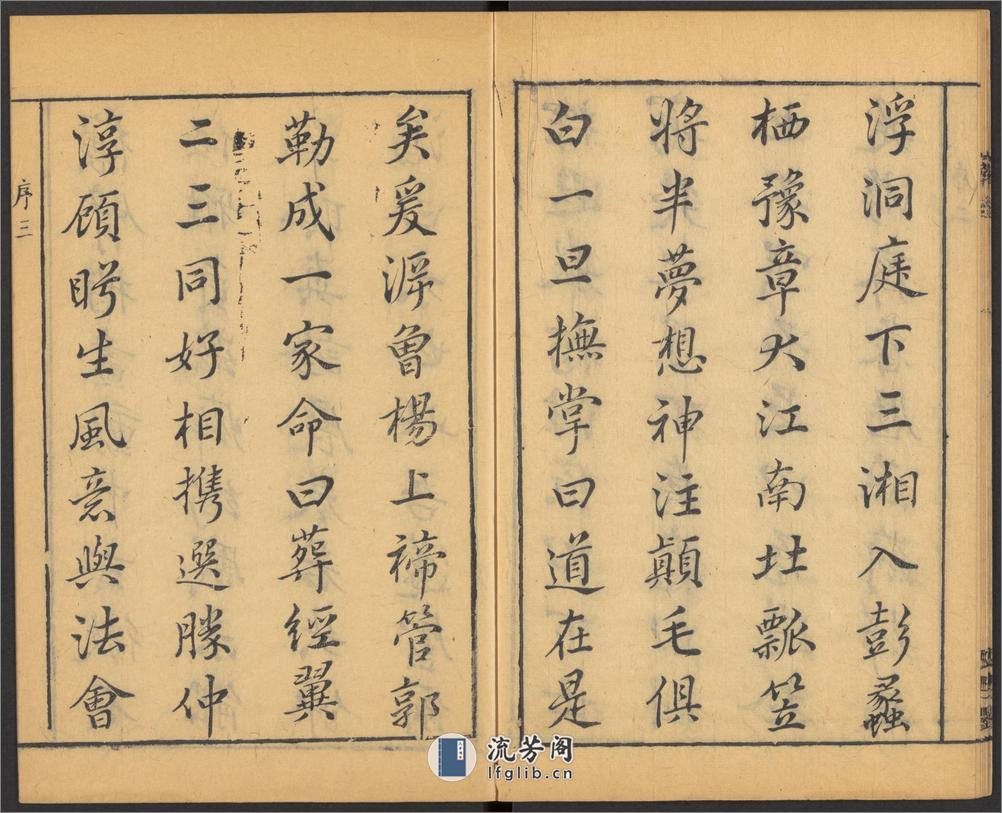 浮洞庭下三湘入彭蠡
栖豫章大江南北瓢笠
將半夢想神注顛毛俱
白一旦撫掌曰道在是
矣爰滹曾楊上禘管郭
勒成一家命曰葬經翼
二三同好相携選勝仲
淳頋眄生風意與法會
序三
流芳阁
lfglib.cn